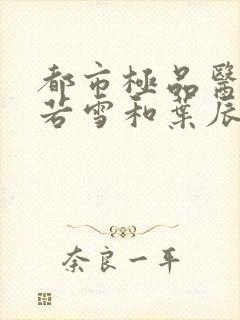 都市極品醫
若雪和葉辰
奈良一平